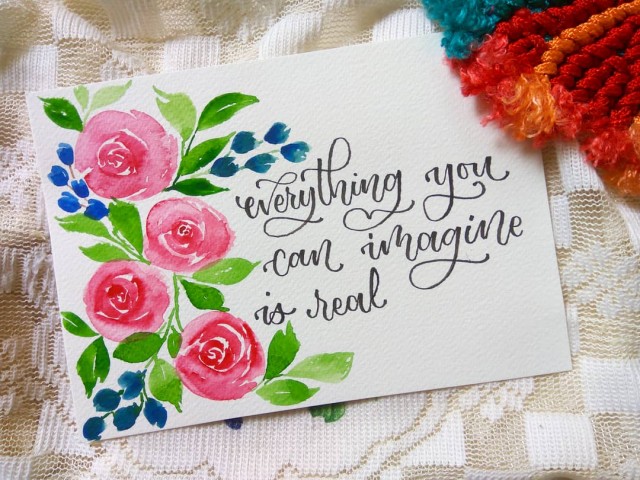 everything you
can imagine
is real